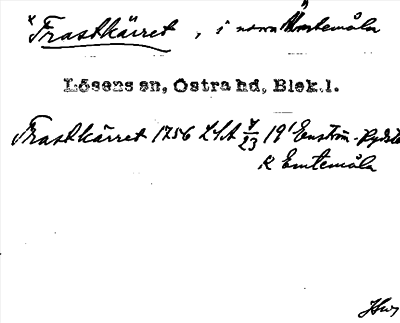 x Frastkärret, i norra Emtemåla
Lösens sn, Östra hd, Blek.l.
Frastkärret 1756 LSA 7/23 19' Enström-Rydst
R Emtemåla